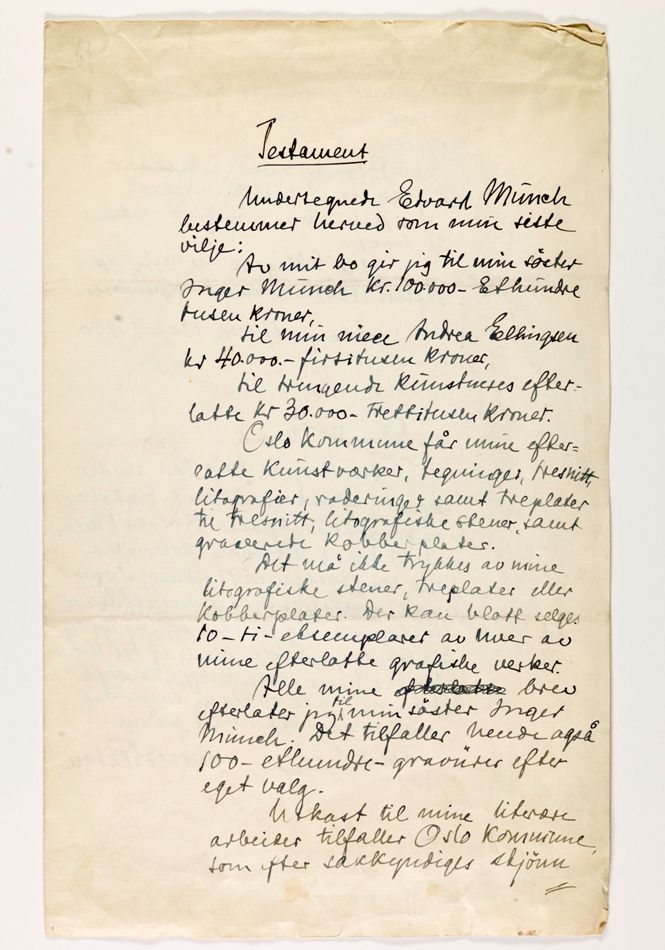 Testament
Undertegnede Edvard Munch
bestemmer herved som min siste
vilje:
Av mit bo gir jeg til min søster
Inger Munch kr. 100.000- Ethundre
tusen kroner,
til min niece Andrea Ellingsen
kr 40.000.- firtitusen kroner,
til trengende kunstneres efter-
latte kr 30.000- Trettitusen kroner.
Oslo kommune får mine efter=
latte kunstværker, tegninger, tresnitt,
litografier, raderinger samt treplater
til tresnitt, litografiske stener, samt
graverede kobberplater.
Det må ikke trykkes av mine
litografiske stener, treplater eller
kobberplater. Der kan blott selges
10-ti-eksemplarer av hver av
mine efterlatte grafiske verker.
Alle mine efterlatte brev
efterlater jeg til min søster Inger
Munch. Det tilfaller hende også
100-ethundre-gravürer efter
eget valg.
Utkast til mine literære
arbeider tilfaller Oslo Kommune,
som efter sakkyndiges skjönn